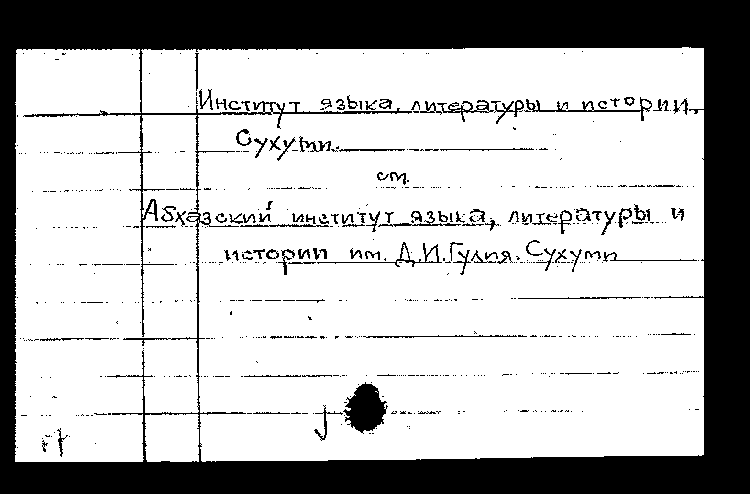 Институт языка, литературы и истории.
Сухуми.
см.
Абхазский институт языка, литературы и
истории им. Д.И.Гулия. Сухуми